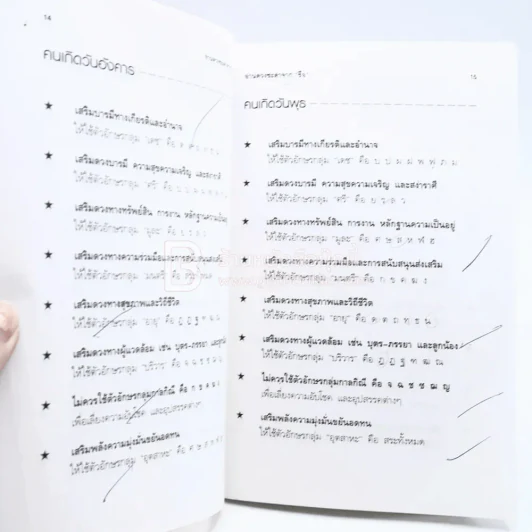 14
คนเกิดวันอังคาร
★ เสริมบารมีทางเกียรติและอำนาจ
ให้ใช้ตัวอักษรกลุ่ม "เดช" คือ
★ เสริมดวงบารมี ความสุขความเจริญ และสง่าราศี
ให้ใช้ตัวอักษรกลุ่ม "ศรี" คือ
★ เสริมดวงทางทรัพย์สิน การงาน หลักฐานความเป็นอยู่
ให้ใช้ตัวอักษรกลุ่ม "มูละ" คือ
★ เสริมดวงทางความร่วมมือและการสนับสนุนส่งเสริม
ให้ใช้ตัวอักษรกลุ่ม "มนตรี" คือ สระทั้งหมด
★ เสริมดวงทางสุขภาพและวิถีชีวิต
ให้ใช้ตัวอักษรกลุ่ม "อายุ" คือ ฎ ฏ ฐ ฑ ฒ ณ
★ เสริมดวงทางผู้แวดล้อม เช่น บุตร-ภรรยา และลูกน้อง
ให้ใช้ตัวอักษรกลุ่ม "บริวาร" คือ จ ฉ ช ซ ฌ
★ ไม่ควรใช้ตัวอักษรกลุ่มกาลกิณี คือ ก ข ค ฆ
เพื่อเลี่ยงความอับโชค และอุปสรรคต่างๆ
★ เสริมพลังความมุ่งมั่นขยันอดทน
ให้ใช้ตัวอักษรกลุ่ม "อุตสาหะ" คือ ศ ษ ส ห ฬ ฮ
15
คนเกิดวันพุธ
★ เสริมบารมีทางเกียรติและอำนาจ
ให้ใช้ตัวอักษรกลุ่ม "เดช" คือ บ ป ผ ฝ พ ฟ ภ ม
★ เสริมดวงบารมี ความสุขความเจริญ และสง่าราศี
ให้ใช้ตัวอักษรกลุ่ม "ศรี" คือ ย ร ล ว
★ เสริมดวงทางทรัพย์สิน การงาน หลักฐานความเป็นอยู่
ให้ใช้ตัวอักษรกลุ่ม "มูละ" คือ ศ ษ ส ห ฬ ฮ
★ เสริมดวงทางความร่วมมือและการสนับสนุนส่งเสริม
ให้ใช้ตัวอักษรกลุ่ม "มนตรี" คือ ก ข ค ฆ ง
★ เสริมดวงทางสุขภาพและวิถีชีวิต
ให้ใช้ตัวอักษรกลุ่ม "อายุ" คือ ด ต ถ ท ธ น
★ เสริมดวงทางผู้แวดล้อม เช่น บุตร-ภรรยา และลูกน้อง
ให้ใช้ตัวอักษรกลุ่ม "บริวาร" คือ ฎ ฏ ฐ ฑ ฒ ณ
★ ไม่ควรใช้ตัวอักษรกลุ่มกาลกิณี คือ จ ฉ ช ซ ฌ ญ
เพื่อเลี่ยงความอับโชค และอุปสรรคต่างๆ
★ เสริมพลังความมุ่งมั่นขยันอดทน
ให้ใช้ตัวอักษรกลุ่ม "อุตสาหะ" คือ สระทั้งหมด